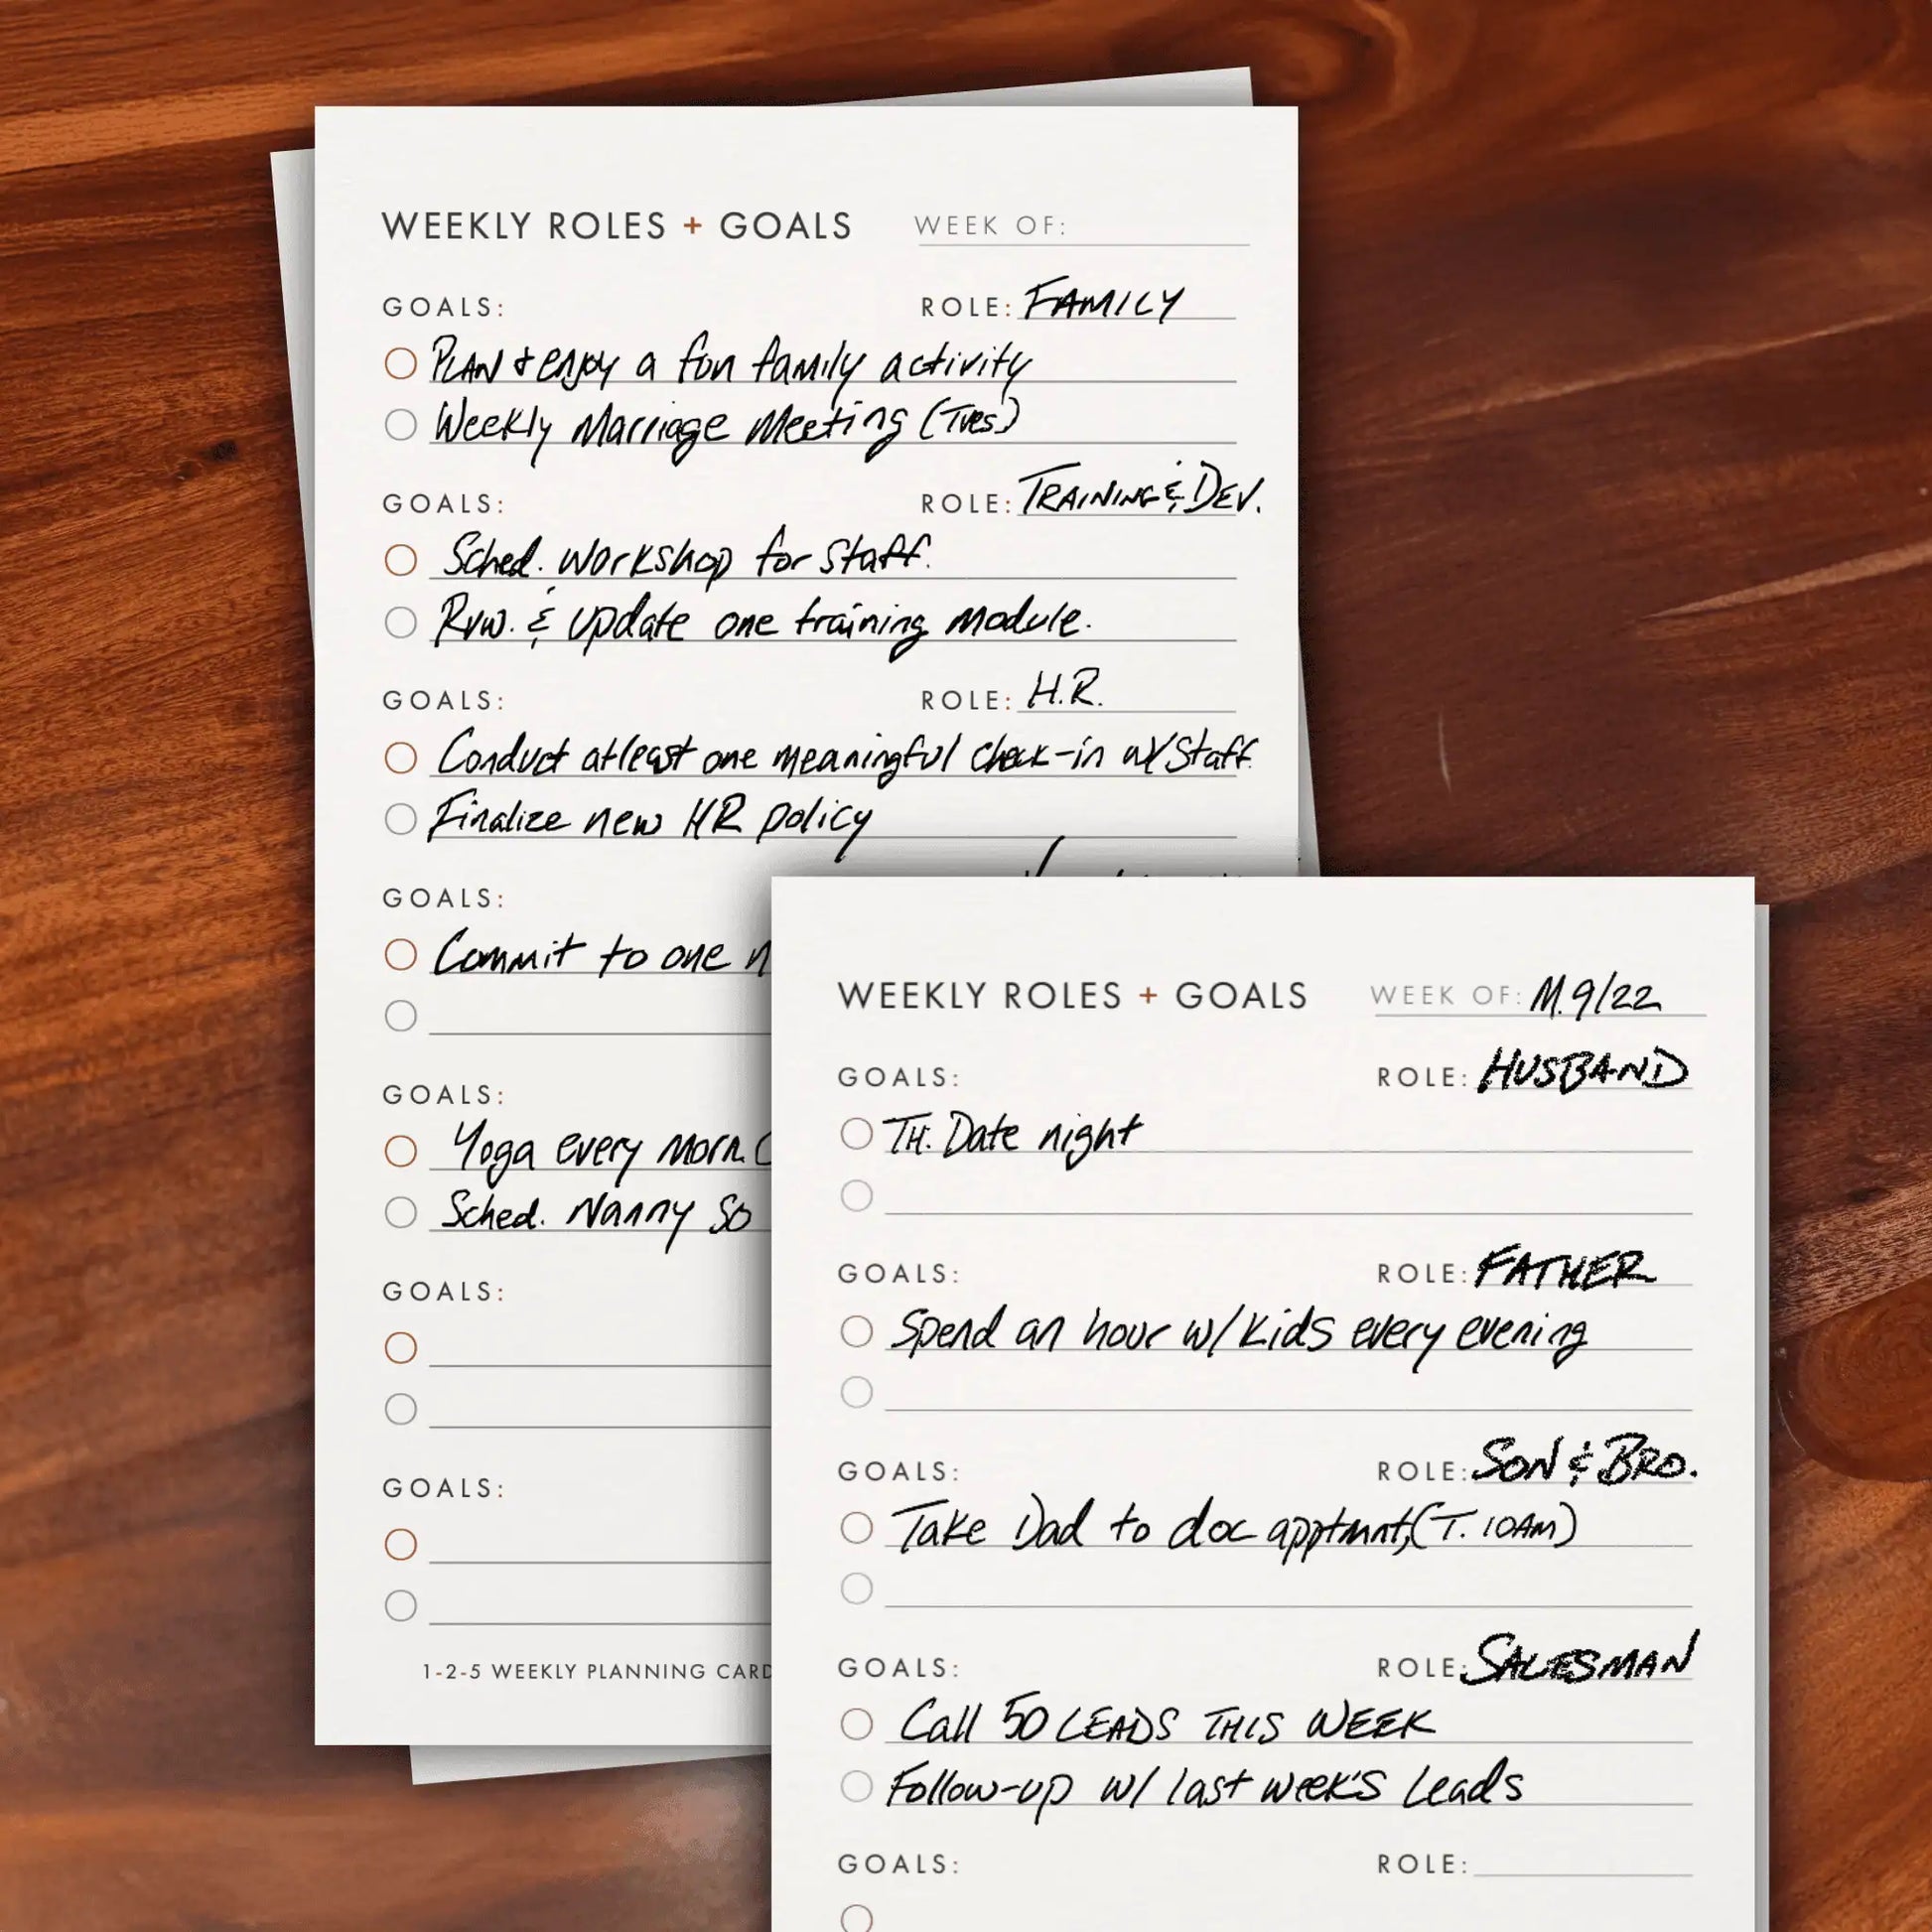 WEEKLY ROLES + GOALS WEEK OF:
GOALS: ROLE: FAMILY
PLAN & enjoy a fun family activity
Weekly Marriage Meeting (Tues)
GOALS: ROLE: TRAINING & DEV.
Sched. workshop for staff.
Rvw. & update one training module.
GOALS: ROLE: H.R.
Conduct atleast one meaningful check-in w/ Staff.
Finalize new HR policy
GOALS:
Commit to one
GOALS:
Yoga every morn.
Sched. Nanny so
GOALS:
GOALS:
1-2-5 WEEKLY PLANNING CARD
WEEKLY ROLES + GOALS WEEK OF: M. 9/22
GOALS: ROLE: HUSBAND
TH. Date night
GOALS: ROLE: FATHER
Spend an hour w/ kids every evening
GOALS: ROLE: SON & BRO.
Take Dad to doc apptmnt, (T. 10AM)
GOALS: ROLE: SALESMAN
Call 50 LEADS THIS WEEK
Follow-up w/ last week's leads
GOALS: ROLE: